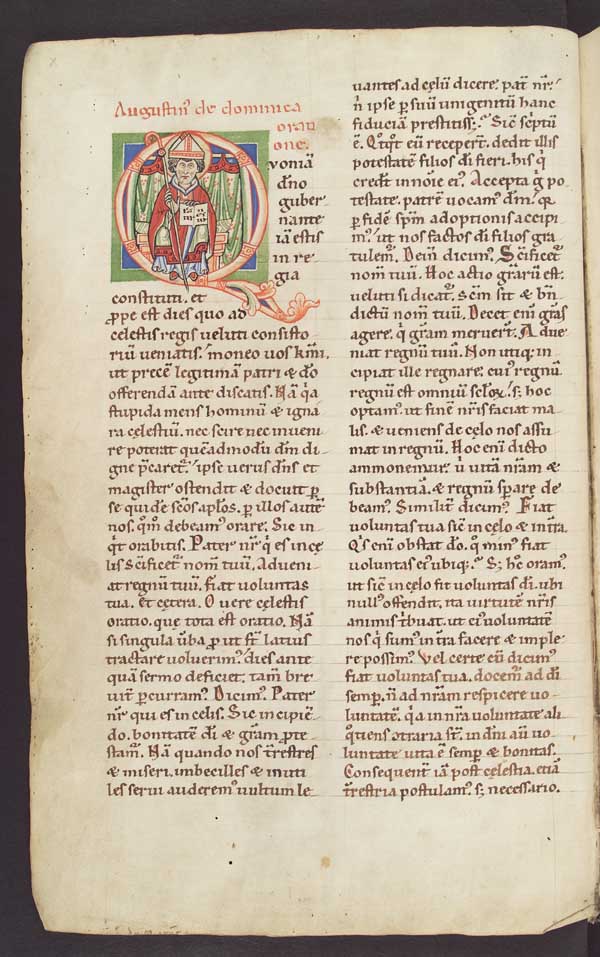 Augustin' de dominica
orati
one.
Quoniã
dño
guber
nante
iã estis
in re
gia
constituti. et
ꝓpe est dies quo ad
cęlestis regis veluti consisto
riũ veniatis. moneo vos kr̃mi.
ut precẽ legitimã patri & dõ
offerendã ante discatis. Nã q'a
stupida mens hominũ & igna
ra cęlestiũ. nec scire nec inveni
re poterat quẽadmodũ dñm di
gne p̃caret̃. ipse verus dñs et
magister ostendit & docuit ꝑ
se quidẽ scõs aplõs. ꝑ illos autẽ
nos. qm̃ debeam' orare. Sic in
qt̃ orabitis. Pater nr̃ q' es in cę
lis Sc̃ificet̃ nom̃ tuũ. Adveni
at regnũ tuũ. fiat voluntas
tua. Et cętera. O vere cęlestis
oratio. quę tota est oratio. Nã
si singula ũba ꝓ ut st̃ latius
tractare voluerim'. dies ante
quã sermo deficiet. tam̃ bre
vit̃ ꝑcurram'. Dicim'. Pater
nr̃ qui es in cęlis. Sic incipiẽ
do. bonitatẽ dĩ & gr̃am ꝓte
stam̃. Nã quando nos tr̃estres
& miseri. imbecilles & inuti
les servi auderem' vultum le
vantes ad cęlũ dicere. pat̃ nr̃.
ñ ipse ꝑ suũ unigenitũ hanc
fiduciã prestitiss&? Sic̃ sc̃ptũ
ẽ. Qtq̃t eũ recepert̃. dedit illis
potestatẽ filios dĩ fieri. his q'
credt̃ in noĩe ei'. Accepta g° po
testate. patrẽ vocam' dm̃. q̃a
ꝑ fidẽ spm̃ adoptionis accipi
m'. ut nos factos dĩ filios gra
tulem'. Dein̄ dicim'. Sc̃ificet̃
nom̃ tuũ. Hoc actio gr̃arũ est.
veluti si dicat̃. Sc̃m sit & bñ
dictũ nom̃ tuũ. Decet eni' gr̃as
agere. q' gr̃am meruert̃. Adve
niat regnũ tuũ. Non utiq; in
cipiat ille regnare. cui' regnũ.
regnũ est omniũ sclõꝝ. s; hoc
optam'. ut finẽ nr̃is faciat ma
lis. & veniens de cęlo nos assu
mat in regnũ. Hoc eni' dicto
ammonemur. ũ vitã nr̃am &
substantiã. & regnũ sꝑare de
beam'. Similit̃ dicim'. Fiat
voluntas tua sic̃ in cęlo & in t̃ra.
Qs eni' obstat dõ. q° min' fiat
voluntas ei' ubiq;? S; h° oram'.
ut sic̃ in cęlo fit voluntas dĩ. ubi
null' offendit. ita virtutẽ nr̃is
animis t'buat. ut ei' voluntatẽ
nos q' sum' in t̃ra facere & imple
re possim'. Vel certe cũ dicim'
fiat voluntas tua. docem' ad dĩ
semꝑ. ñ ad nr̃am respicere vo
luntatẽ. q'a in nr̃a voluntate ali
q°tiens ctraria st̃. in dñi aũ vo
luntate vita ẽ semꝑ & bonitas.
Consequent̃ iã post cęlestia. etiã
tr̃estria postulam'. s; necessario.